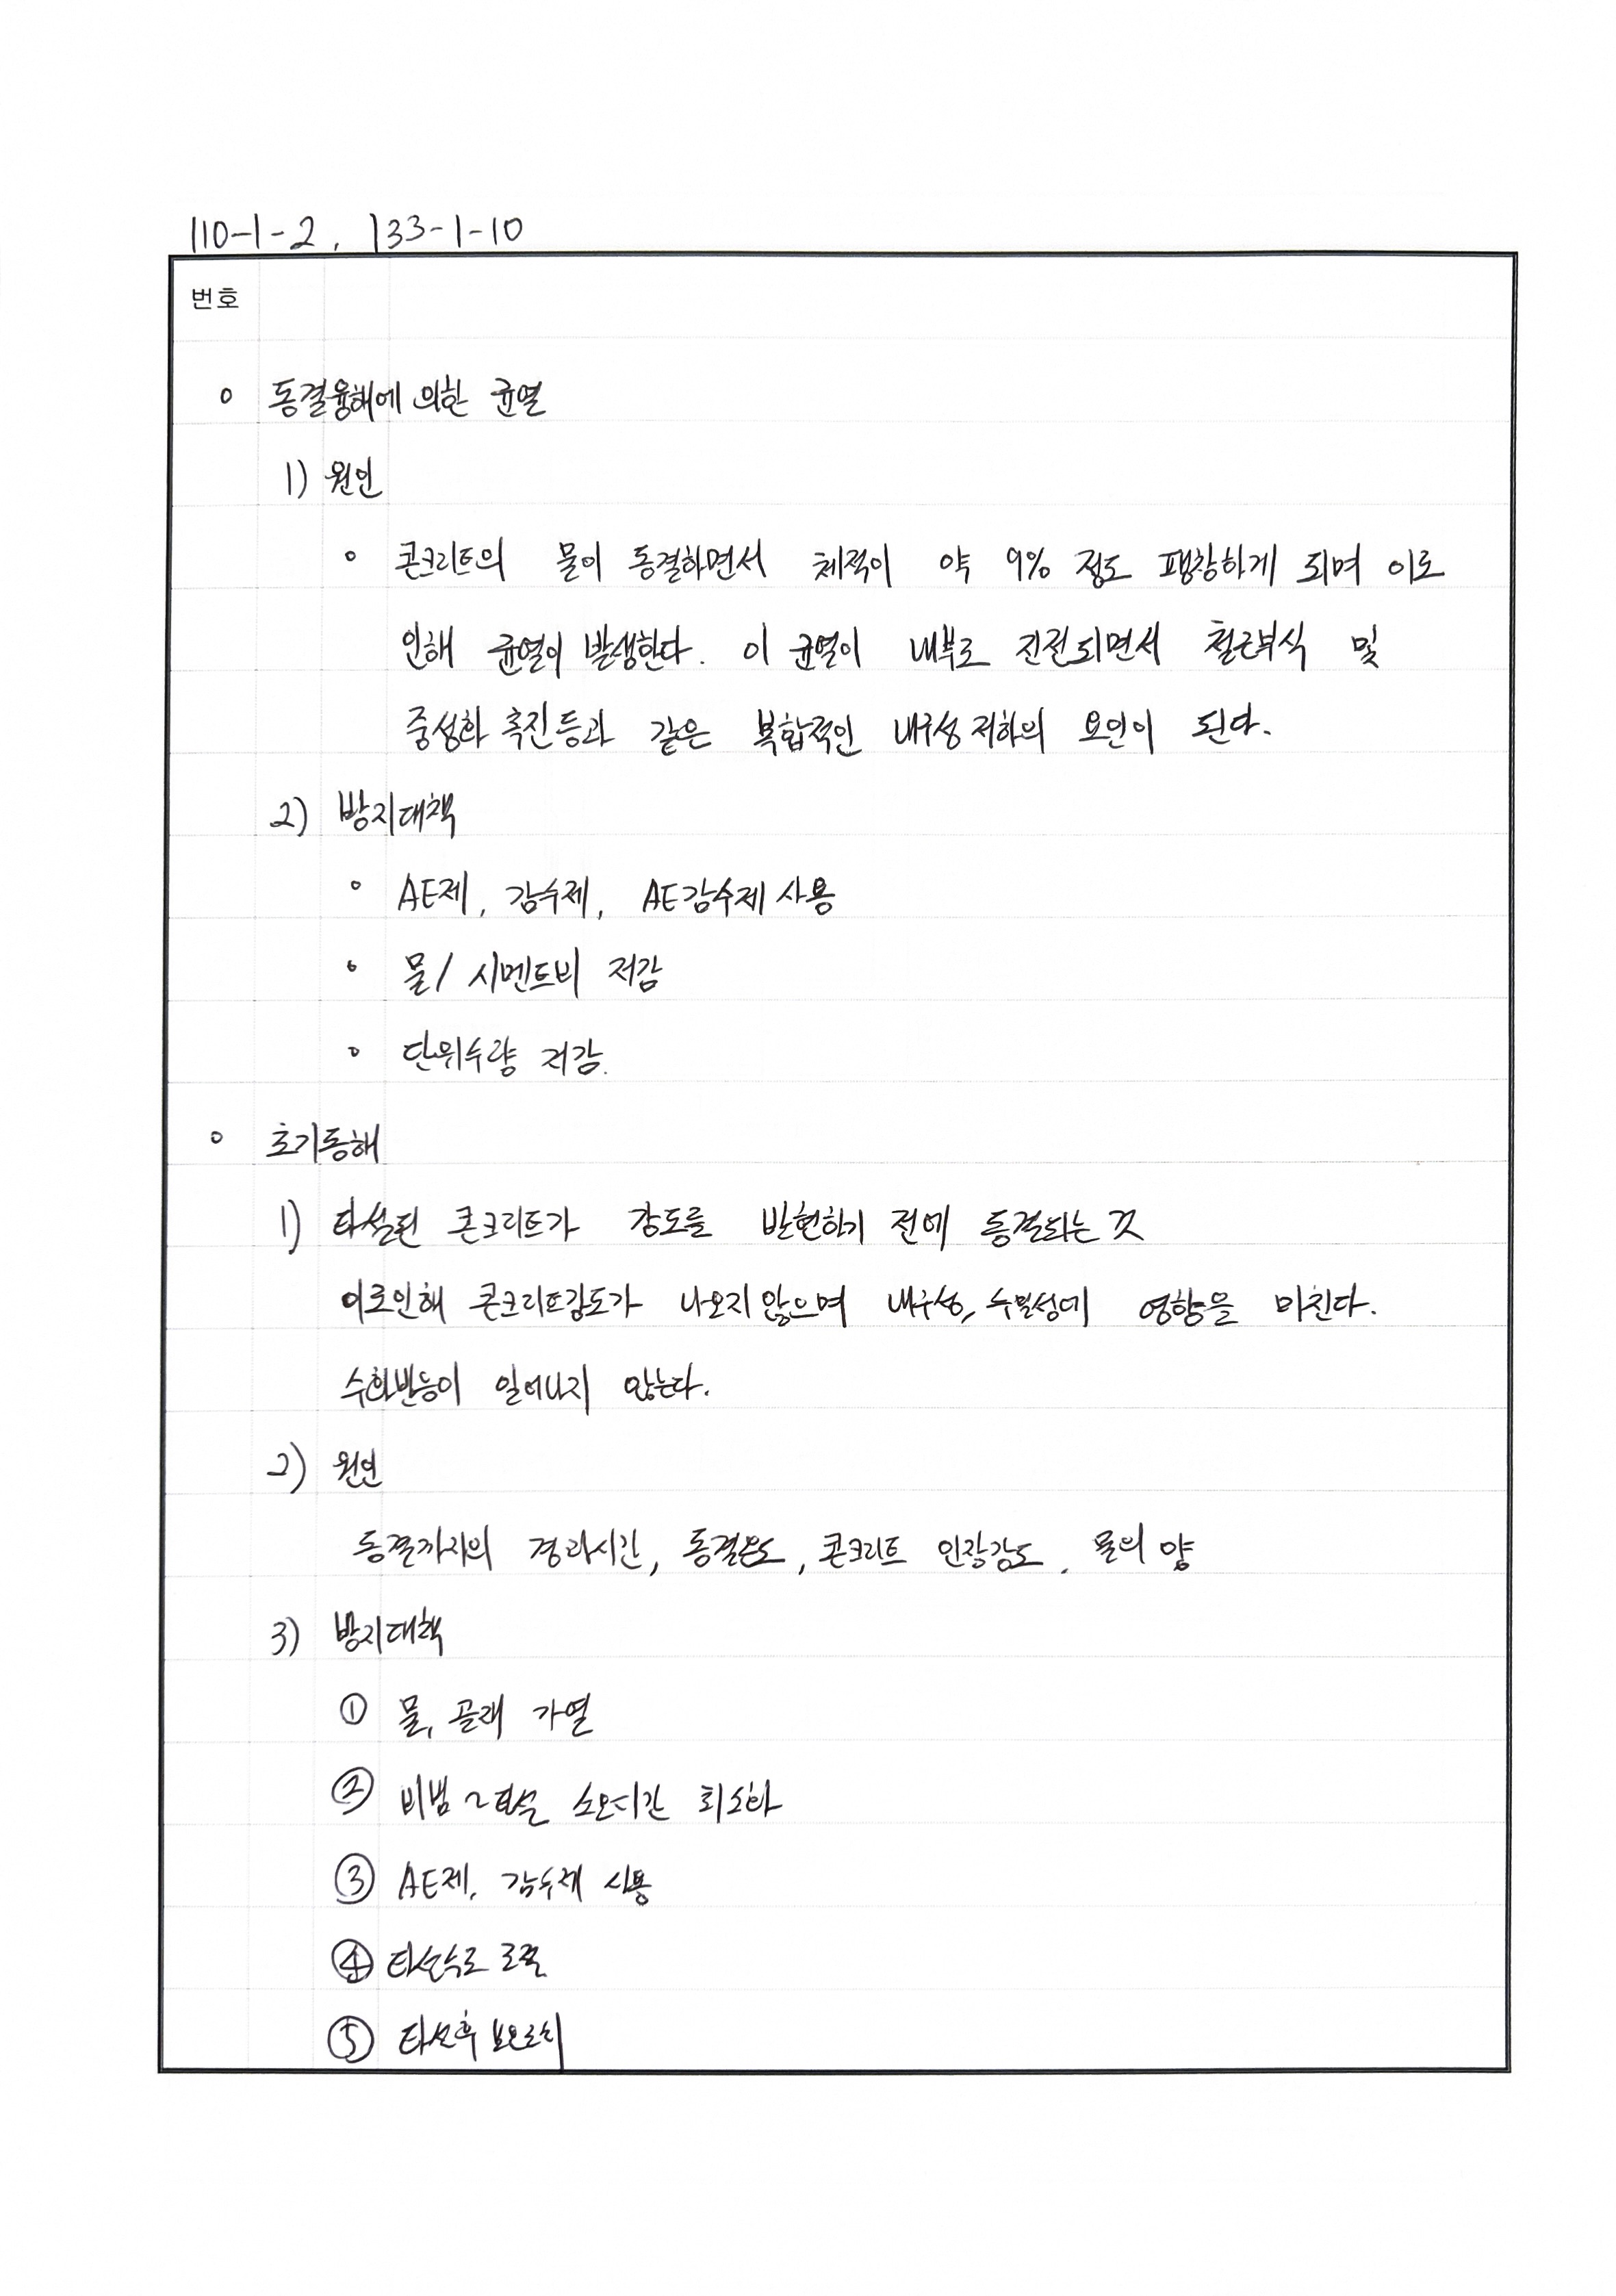 110-1-2, 133-1-10
번호
○ 동결융해에 의한 균열
1) 원인
○ 콘크리트의 물이 동결하면서 체적이 약 9% 정도 팽창하게 되며 이로
인해 균열이 발생한다. 이 균열이 내부로 진전되면서 철근부식 및
중성화 촉진등과 같은 복합적인 내구성 저하의 요인이 된다.
2) 방지대책
○ AE제, 감수제, AE감수제 사용
○ 물/시멘트비 저감
○ 단위수량 저감.
○ 초기동해
1) 타설된 콘크리트가 강도를 발현하기 전에 동결되는 것
이로인해 콘크리트강도가 나오지 않으며 내구성, 수밀성에 영향을 미친다.
수화반응이 일어나지 않는다.
2) 원인
동결까지의 경과시간, 동결온도, 콘크리트 인장강도, 물의 양
3) 방지대책
① 물, 골재 가열
② 비빔~타설 소요시간 최소화
③ AE제, 감수제 사용
④ 타설속도 조절
⑤ 타설후 보온조치